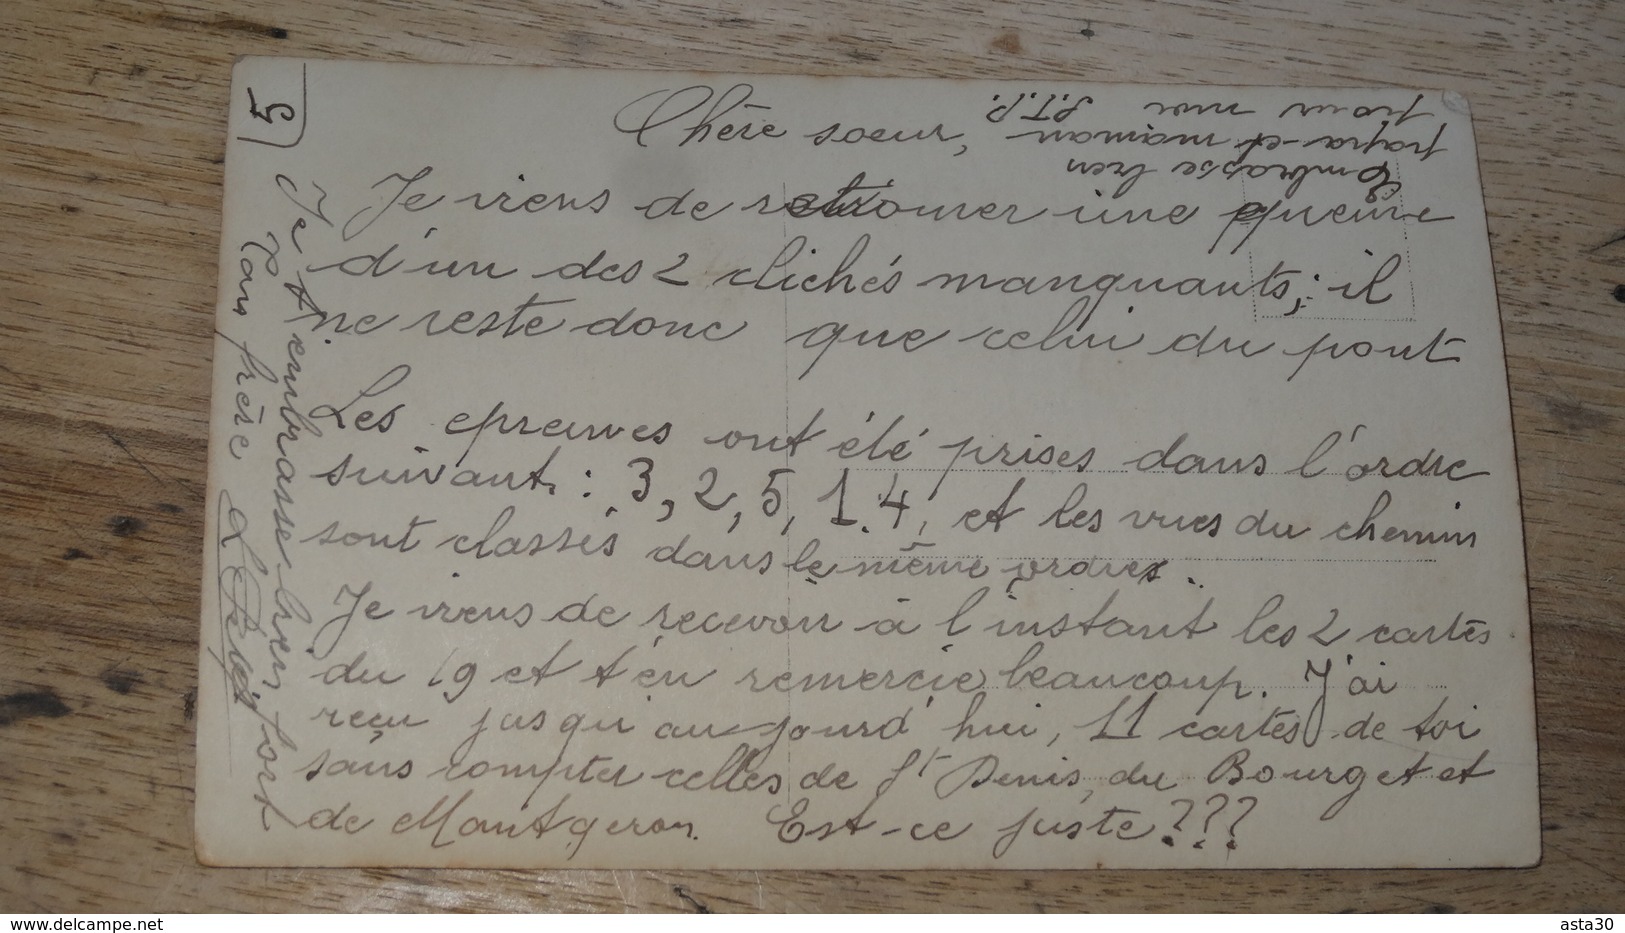 5
Chère soeur,
Je viens de retrouver une épreuve
d'un des 2 clichés manquants; il
ne reste donc que celui du pont
Les epreuves ont été prises dans l'ordre
suivant : 3, 2, 5, 1, 4, et les vues du chemin
sont classés dans le même ordre.
Je viens de recevoir à l'instant les 2 cartes
du 19 et t'en remercie beaucoup. J'ai
reçu jusqu'aujourd'hui, 11 cartes de toi
sans compter celles de St Denis, du Bourget et
de Montgeron. Est-ce juste ???
Je t'embrasse bien fort
Ton frère
Embrasse bien
papa et maman
pour moi S.T.P.
www.delcampe.net
asta30